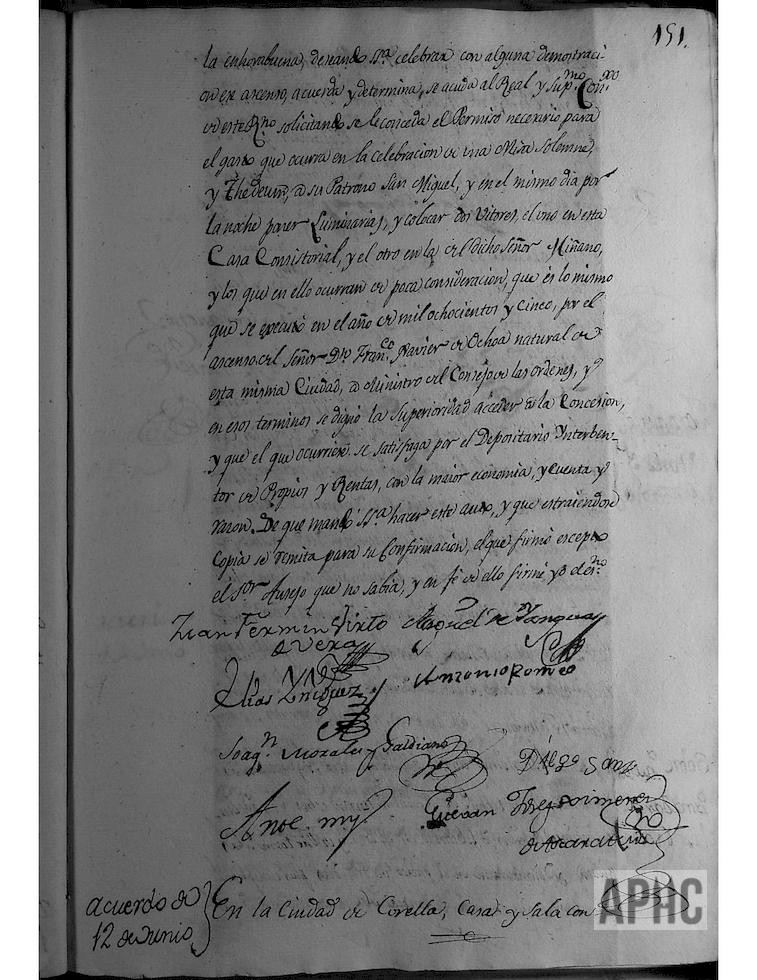 151.
la enhorabuena, deseando S.ª celebrar con alguna demostraci-
on ese ascenso, acuerda y determina, se acuda al Real y Sup.mo Con.xo
de este R.no solicitando se le conceda el Permiso necesario para
el gasto que ocurra en la celebracion de una Misa Solemne,
y Thedeum, a su Patrono San Miguel, y en el mismo dia por
la noche poner Luminarias, y colocar dos Vitores, el uno en esta
Casa Consistorial, y el otro en la del dicho Señor Miñano,
y los que en ello ocurran de poca consideracion, que es lo mismo
que se executó en el año de mil ochocientos y Cinco, por el
ascenso del Señor Dn. Fran.co Xavier de Ochoa natural de
esta misma Ciudad, a Ministro del Consejo de las ordenes, y
en esos terminos se dignó la Superioridad acceder a la Concesion,
y que el que ocurriere se satisfaga por el Depositario Interben-
tor de Propios y Rentas, con la maior economia, y cuenta y
razon. De que mandó S.ª hacer este auto, y que estraiendose
Copia se remita para su Confirmacion, el que firmó escepto
el S.or Ausejo que no sabia, y en fe de ello firmé yo el es.no
Juan Fermin Virto
de Vera
Miguel de
Elias Yñiguez
Antonio Romeo
Joaq.n Morales y Galdiano
Diego Sanz
Ante mi
Estevan Joseph Ximenez
de
acuerdo de
12 de Junio
En la Ciudad de Corella, Casa y Sala con
APHC